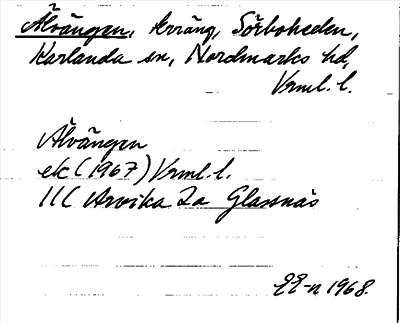 Älvängen, terräng, Sörboheden,
Karlanda sn, Nordmarks hd,
Vrml. l.
Älvängen
ek (1967) Vrml. l.
11C Arvika 2a Glassnäs
EE-n 1968.